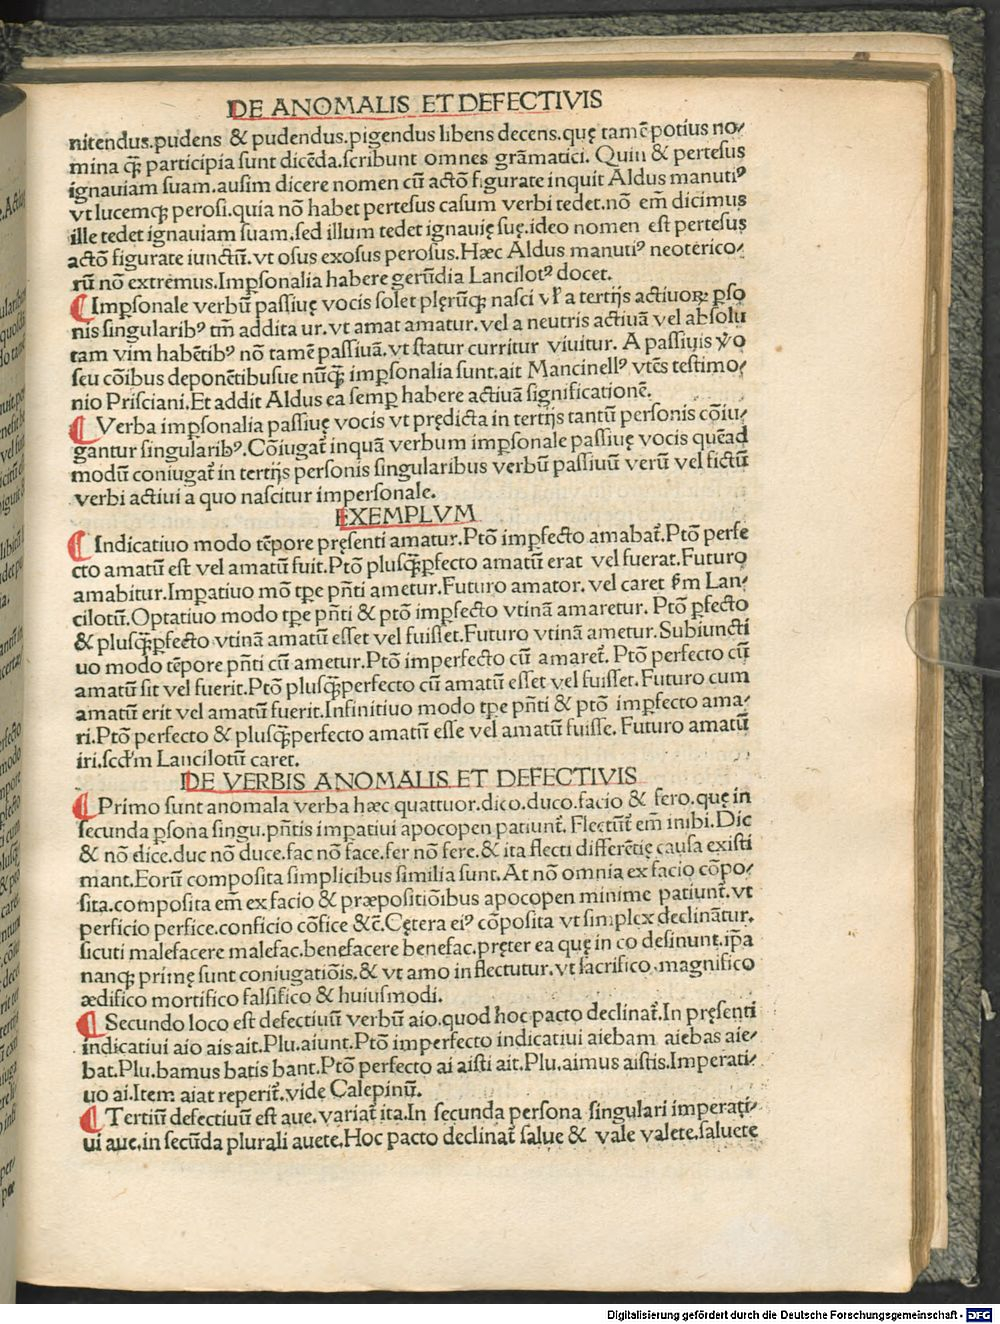 DE ANOMALIS ET DEFECTIVIS
nitendus.pudens & pudendus.pigendus libens decens.quę tamē potius no⸗
mina q̄ꝫ participia sunt dicēda.scribunt omnes grāmatici. Quin & pertesus
ignauiam suam.ausim dicere nomen cū actō figurate inquit Aldus manutiꝰ
vt lucemqꝫ perosi.quia nō habet pertesus casum verbi tedet.nō em̄ dicimus
ille tedet ignauiam suam.sed illum tedet ignauię suę.ideo nomen est pertesus
actō figurate iunctū.vt osus exosus perosus.Hæc Aldus manutiꝰ neoterico⸗
rū nō extremus.Imꝑsonalia habere gerūdia Lancilotꝰ docet.
¶ Imꝑsonale verbū passiuę vocis solet plęrūqꝫ nasci vł a tertijs actiuoꝝ ꝑso
nis singularibꝰ tm̄ addita ur.vt amat amatur.vel a neutris actiuā vel absolu
tam vim habētibꝰ nō tamē passiuā.vt statur curritur viuitur. A passiuis v̊o
seu cōibus deponētibusue nūq̄ꝫ imꝑsonalia sunt.ait Mancinellꝰ vtēs testimo⸗
nio Prisciani.Et addit Aldus ea semꝑ habere actiuā significationē.
¶ Verba imꝑsonalia passiuę vocis vt prędicta in tertijs tantū personis cōiu⸗
gantur singularibꝰ.Cōiugat̄ inquā verbum imꝑsonale passiuę vocis quēad
modū coniugat̄ in tertijs personis singularibus verbū passiuū verū vel fictū
verbi actiui a quo nascitur impersonale.
EXEMPLVM
¶ Indicatiuo modo tēpore pręsenti amatur.Ptō imꝑfecto amabat̄.Ptō perfe
cto amatū est vel amatū fuit.Ptō plusq̄ꝫꝑfecto amatū erat vel fuerat.Futuro
amabitur.Imꝑatiuo mō tꝑe pn̄ti ametur.Futuro amator. vel caret ẜm Lan⸗
cilotū.Optatiuo modo tꝑe pn̄ti & ptō imꝑfecto vtinā amaretur. Ptō ꝑfecto
& plusq̄ꝫꝑfecto vtinā amatū esset vel fuisset.Futuro vtinā ametur.Subiuncti
uo modo tēpore pn̄ti cū ametur.Ptō imperfecto cū amaret̄. Ptō perfecto cū
amatū sit vel fuerit.Ptō plusq̄ꝫperfecto cū amatū esset vel fuisset.Futuro cum
amatū erit vel amatū fuerit.Infinitiuo modo tꝑe pn̄ti & ptō imꝑfecto ama⸗
ri.Ptō perfecto & plusq̄ꝫperfecto amatū esse vel amatū fuisse. Futuro amatū
iri.scđm Lancilotū caret.
DE VERBIS ANOMALIS ET DEFECTIVIS
¶ Primo sunt anomala verba hæc quattuor.dico.duco.facio & fero.quę in
secunda ꝑsona singu.pn̄tis imꝑatiui apocopen patiunt̄. Flectūt̄ em̄ inibi.Dic
& nō dice.duc nō duce.fac nō face.fer nō fere.& ita flecti differētię causa existi
mant.Eorū composita simplicibus similia sunt.At nō omnia ex facio cōpo⸗
sita.composita em̄ ex facio & præpositiōibus apocopen minime patiunt̄.vt
perficio perfice.conficio cōfice &c̄.Cętera eiꝰ cōposita vt simplex declināt̄ur.
sicuti malefacere malefac.benefacere benefac.pręter ea quę in co desinunt.ip̄a
nanqꝫ primę sunt coniugatiōis.& vt amo inflectutur.vt sacrifico.magnifico
ædifico mortifico falsifico & huiusmodi.
¶ Secundo loco est defectiuū verbū aio.quod hoc pacto declinat̄.In pręsenti
indicatiui aio ais ait.Plu.aiunt.Ptō imperfecto indicatiui aiebam aiebas aie⸗
bat.Plu.bamus batis bant.Ptō perfecto ai aisti ait.Plu.aimus aistis.Imperati⸗
uo ai.Item aiat reperit̄.vide Calepinū.
¶ Tertiū defectiuū est aue.variat̄ ita.In secunda persona singulari imperati⸗
ui aue.in secūda plurali auete.Hoc pacto declinat̄ salue & vale valete.saluete
Digitalisierung gefördert durch die Deutsche Forschungsgemeinschaft - DFG